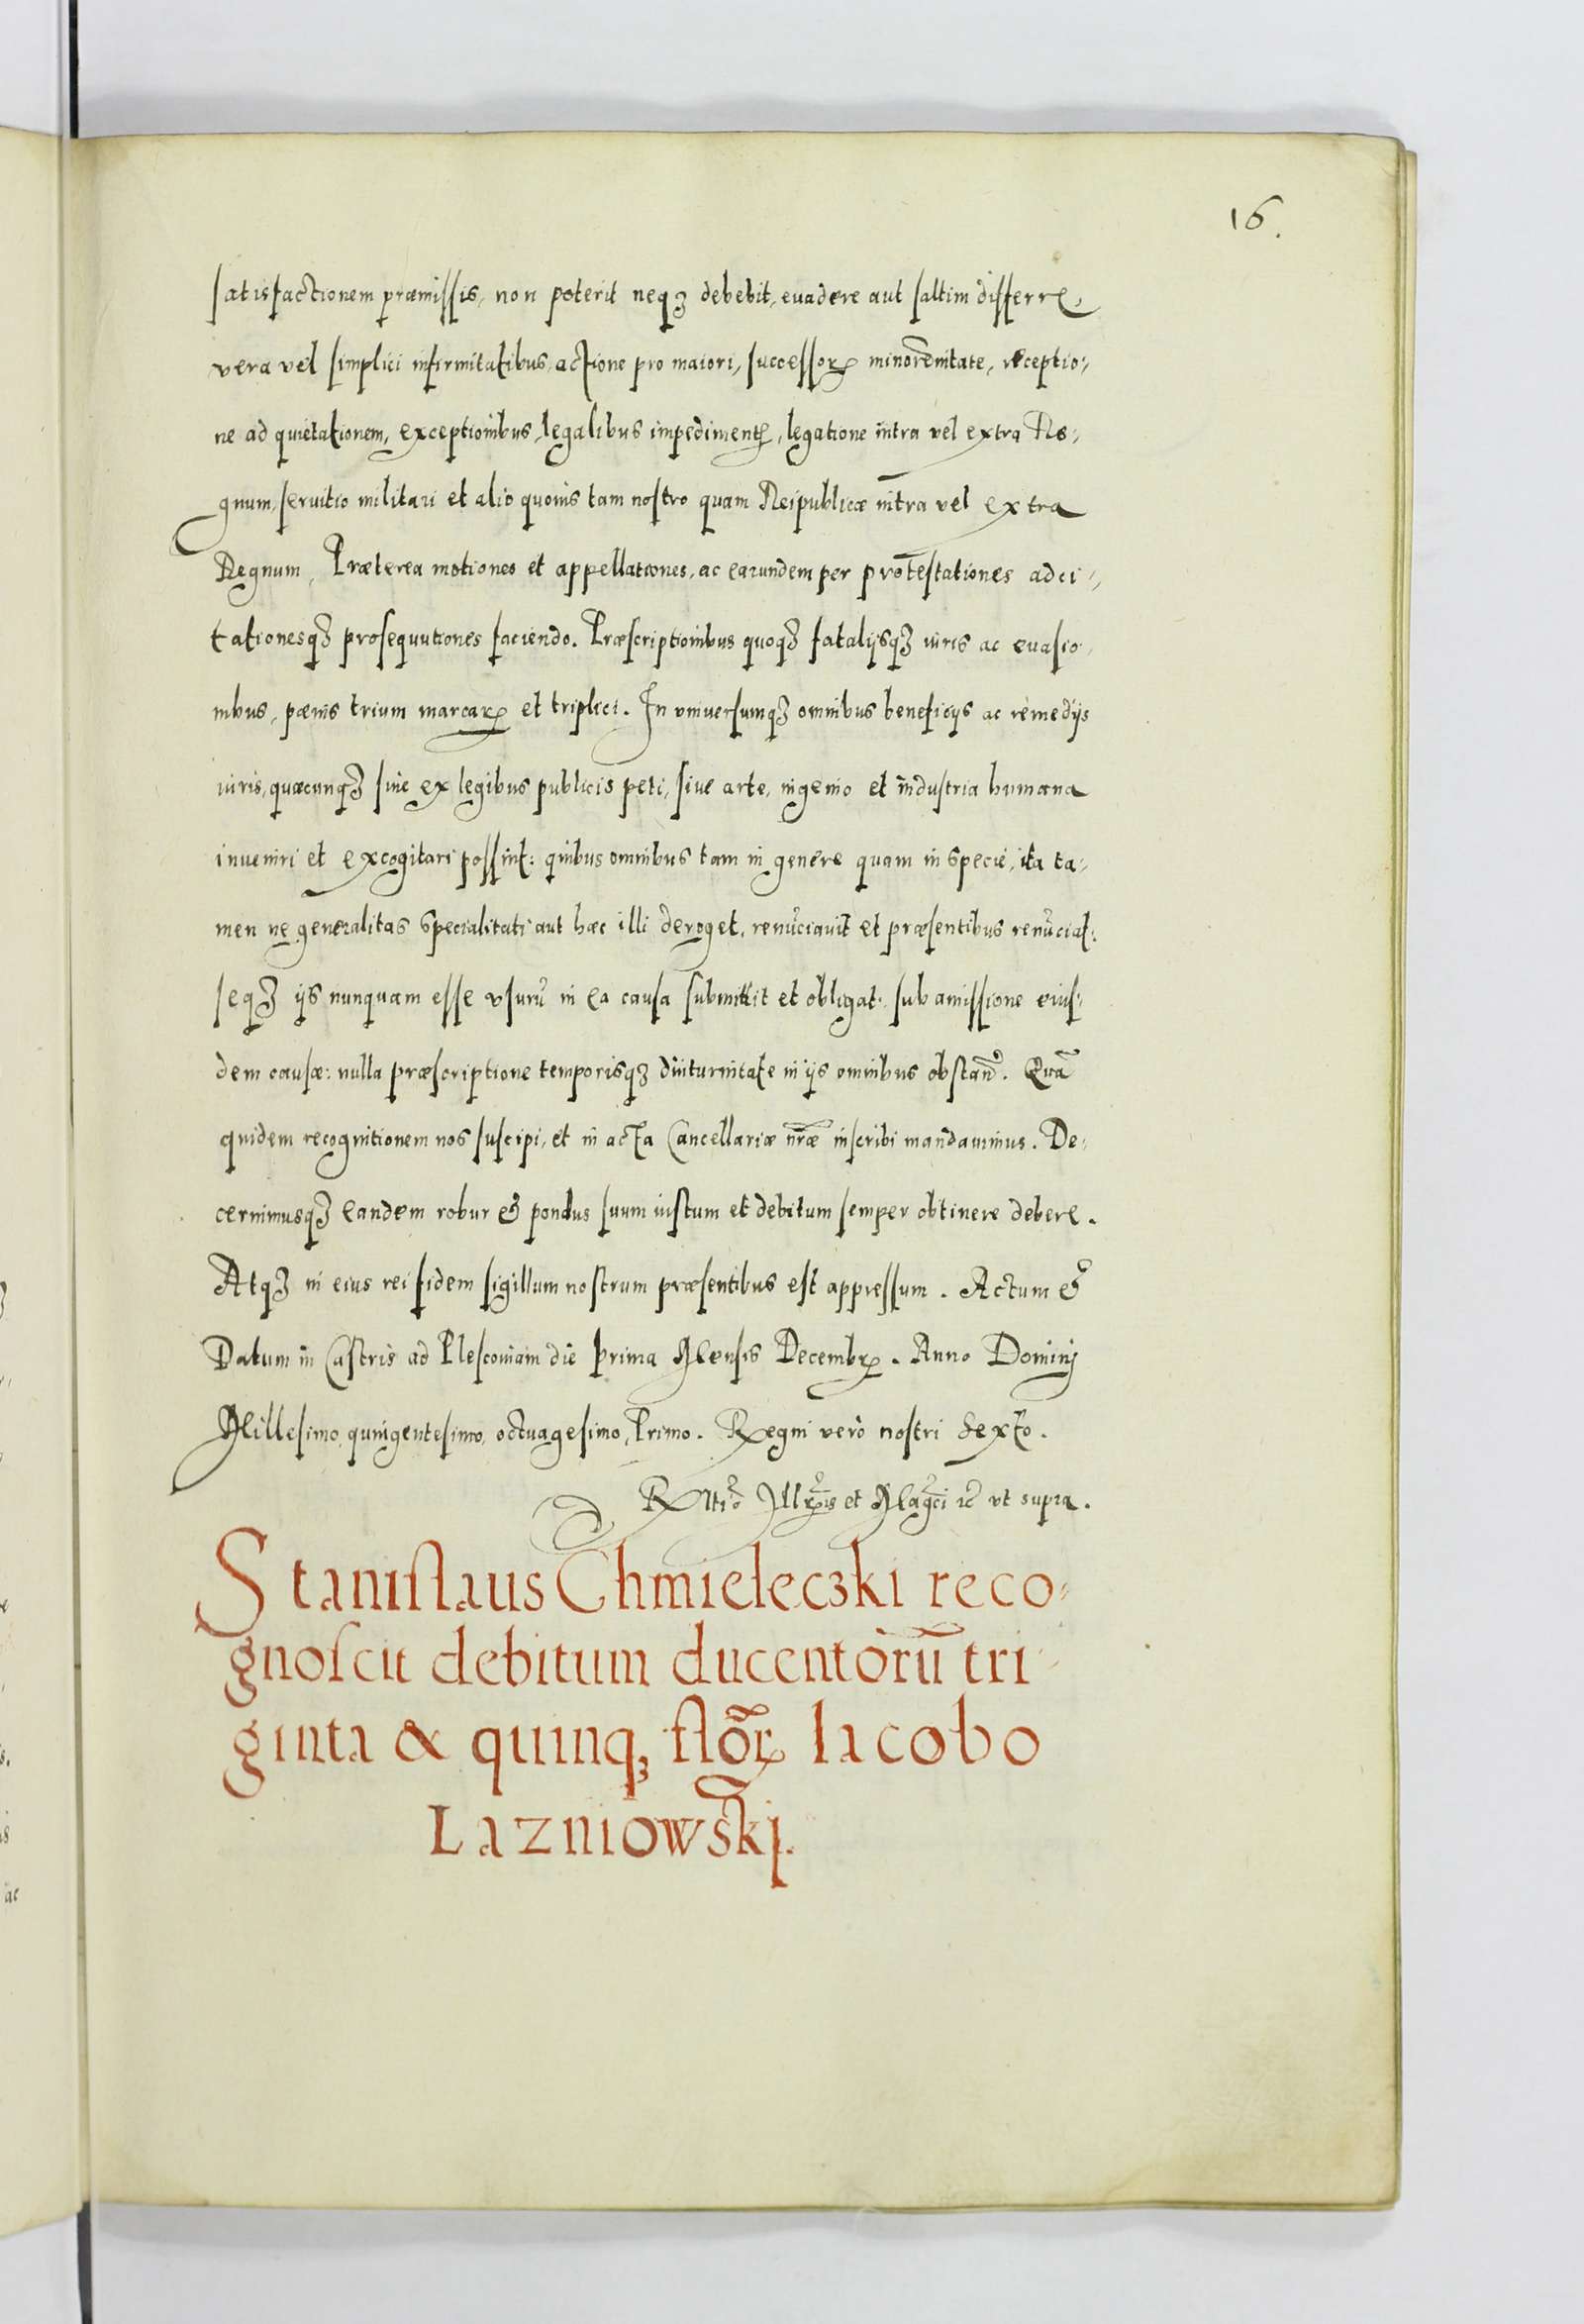 16.
satisfactionem præmissis, non poterit neqꝫ debebit, euadere aut saltim differre,
vera vel simplici infirmitatibus, actione pro maiori, successoꝝ minorēnitate, receptio-
ne ad quietationem, exceptionibus, legalibus impedimentꝭ, legatione intra vel extra Re-
gnum, seruitio militari et alio quouis tam nostro quam Reipublicæ intra vel extra
Regnum, Præterea motiones et appellationes, ac earundem per protestationes ad ci-
tationesqꝫ prosequutiones faciendo. Præscriptionibus quoqꝫ fatalijsqꝫ iuris ac euasio-
nibus, pœnis trium marcaꝝ et triplici. In vniuersumqꝫ omnibus beneficijs ac remedijs
iuris, quæcunqꝫ siue ex legibus publicis peti, siue arte, ingenio et industria humana
inueniri et excogitari possint: quibus omnibus tam in genere quam in specie, ita ta-
men ne generalitas specialitati aut hæc illi deroget, renūciauit et præsentibus renūciat:
seqꝫ ijs nunquam esse vsurū in ea causa submittit et obligat, sub amissione eius-
dem causæ: nulla præscriptione temporisqꝫ diuturnitate in ijs omnibus obstañ. Quā
quidem recognitionem nos suscipi, et in acta Cancellariæ nr̃æ inscribi mandauimus. De-
cernimusqꝫ eandem robur & pondus suum iustum et debitum semper obtinere debere.
Atqꝫ in eius rei fidem sigillum nostrum præsentibus est appressum. Actum &
Datum in Castris ad Plescouiam die prima Mensis Decembꝝ. Anno Dominj
Millesimo, quingentesimo, octuagesimo, Primo. Regni verò nostri Sexto.
et Mag̃ci ut supra.
Stanislaus Chmieleczki reco-
gnoscit debitum ducentorū tri-
ginta & quinqꝫ flor̃ Iacobo
Lazniowskj.